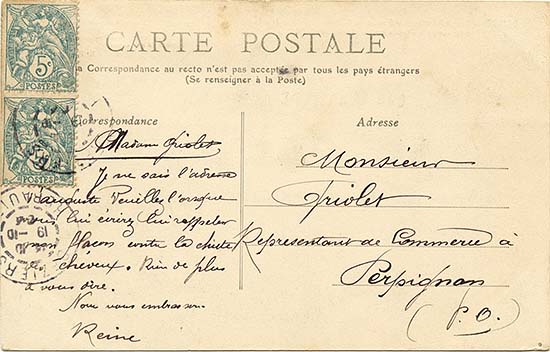 CARTE POSTALE
a Correspondance au recto n'est pas acceptée par tous les pays étrangers
(Se renseigner à la Poste)
5c
POSTES
POSTES
Correspondance
Adresse
Madame Griolet
Je ne sais l'adresse
auguste Veuillez l'orsque
vous lui écrirez lui rappeler
mon flacon contre la chute
cheveux. Rien de plus
a vous dire.
Nous vous embrassons.
Reine
Monsieur
Griolet
Representant de Commerce à
Perpignan
(P. O.)
19 - 10